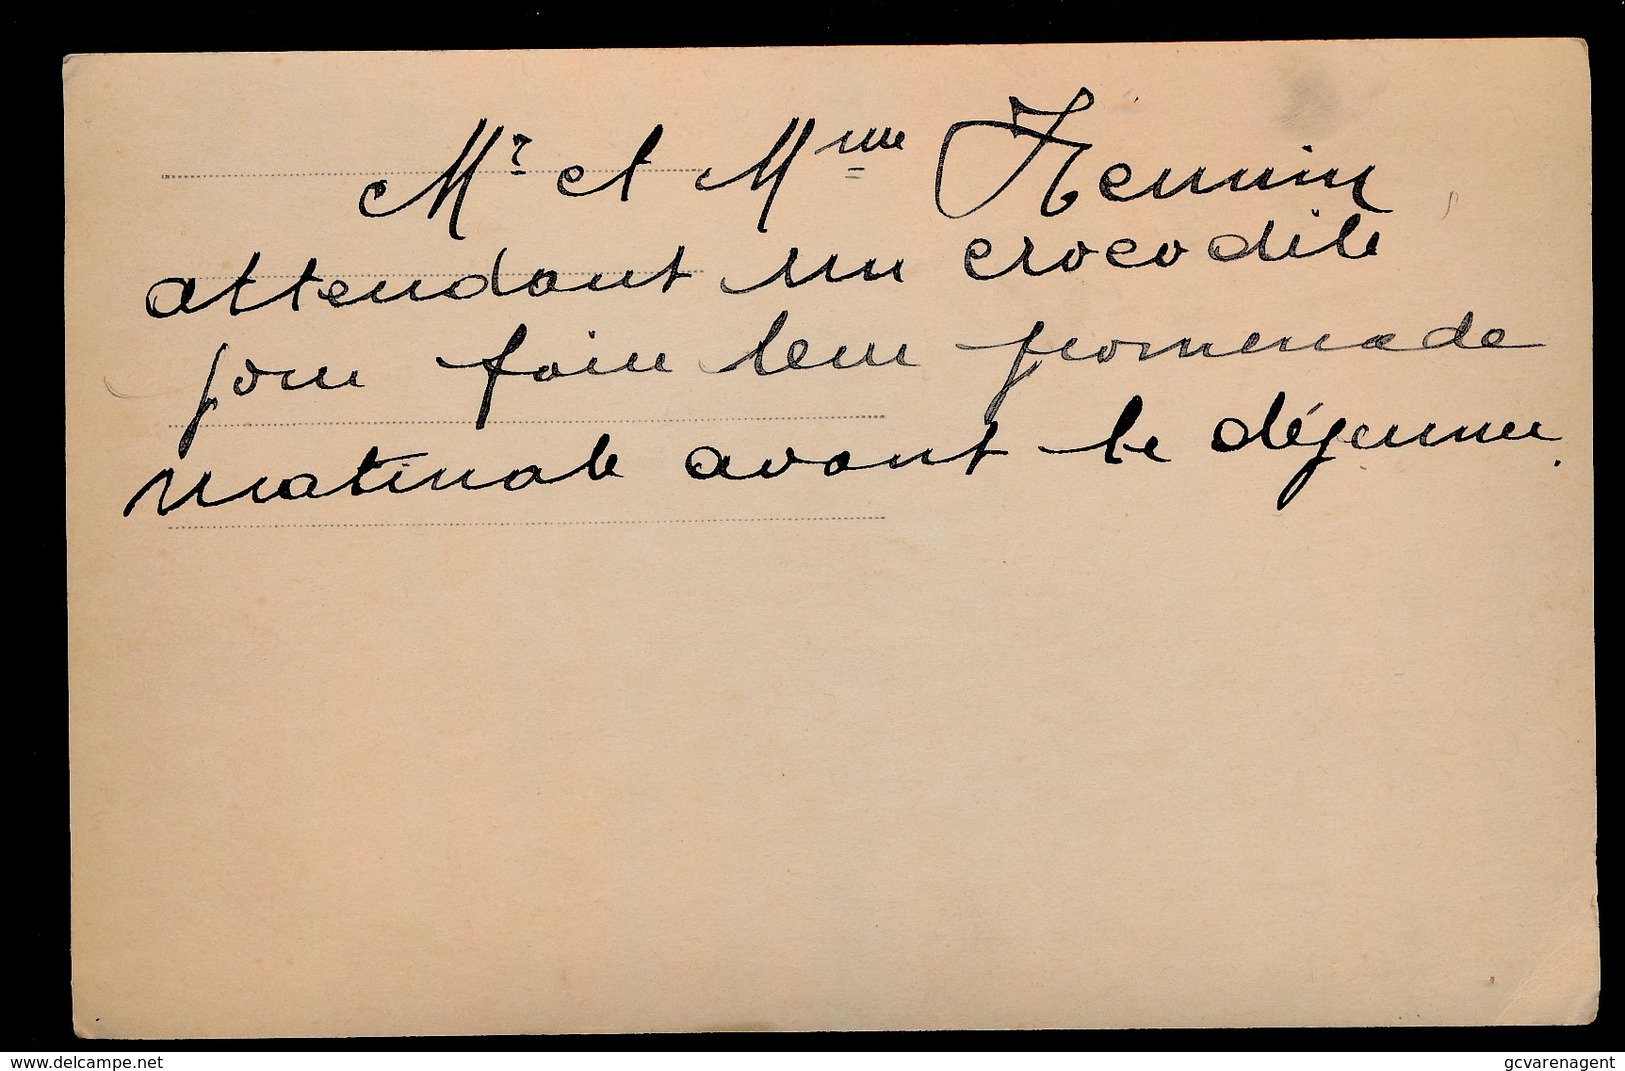 Mr et Mme Hennin
attendant un crocodile
pour faire leur promenade
matinale avant le déjeuner.
www.delcampe.net
gcvarenagent